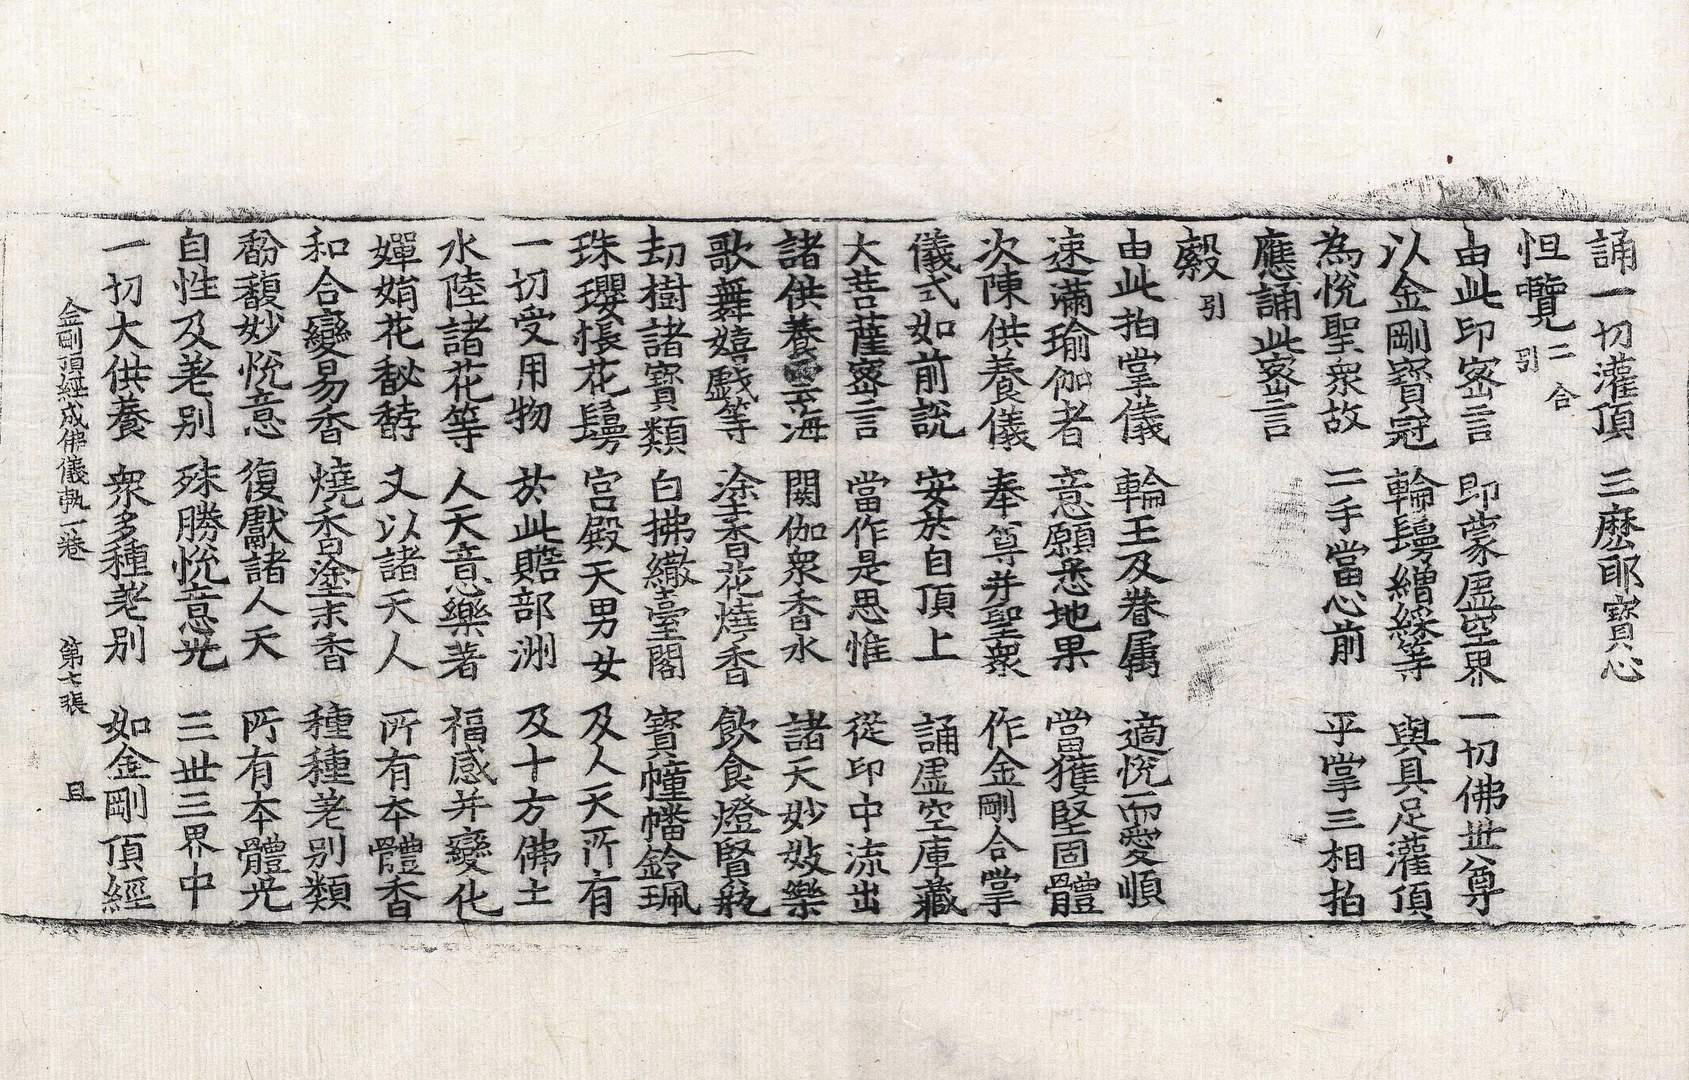 誦一切灌頂　三麽耶寶心
怛囕二合引
由此印密言　即蒙虛空界　一切佛世尊
以金剛寶冠　輪鬘繒綵等　與具足灌頂
為悅聖衆故　二手當心前　平掌三相拍
應誦此密言
㲉引
由此拍掌儀　輪王及眷属　適悅而愛順
速滿瑜伽者　意願悉地果　當獲堅固體
次陳供養儀　奉尊并聖衆　作金剛合掌
儀式如前說　安於自頂上　誦虛空庫藏
大菩薩密言　當作是思惟　從印中流出
諸供養雲海　閼伽衆香水　諸天妙妓樂
歌舞嬉戲等　塗香花燒香　飲食燈賢瓶
劫樹諸寶類　白拂繖臺閣　寶幢幡鈴珮
珠瓔悵花鬘　宮殿天男女　及人天所有
一切受用物　於此贍部洲　及十方佛土
水陸諸花等　人天意樂著　福感并變化
嬋娟花馝馞　又以諸天人　所有本體香
和合變易香　燒香塗末香　種種差別類
馚馥妙悅意　復獻諸人天　所有本體光
自性及差別　殊勝悅意光　三世三界中
一切大供養　衆多種差別　如金剛頂經
金剛頂經成佛儀軌一卷　第七張　且